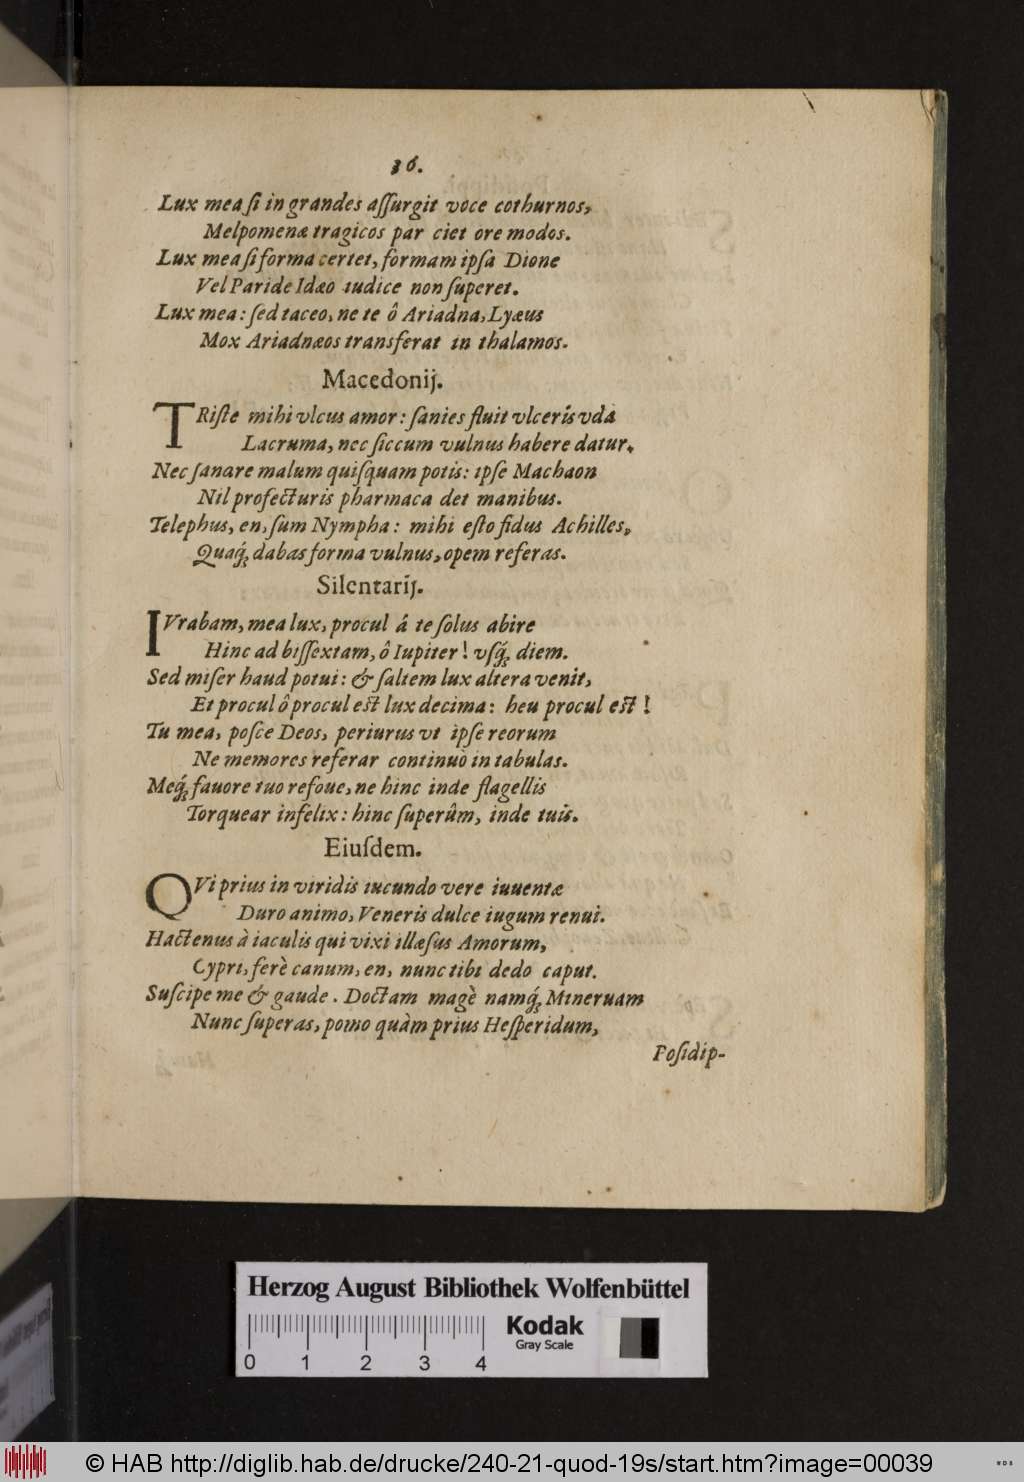 36.
Lux mea ſi in grandes aſſurgit voce cothurnos,
Melpomenæ tragicos par ciet ore modos.
Lux mea ſi forma certet, formam ipſa Dione
Vel Paride Idæo iudice non ſuperet.
Lux mea: ſed taceo, ne te ô Ariadna, Lyæus
Mox Ariadnæos transferat in thalamos.
Macedonij.
TRiſte mihi vlcus amor: ſanies fluit vlceris vda
Lacruma, nec ſiccum vulnus habere datur.
Nec ſanare malum quiſquam potis: ipſe Machaon
Nil profecturis pharmaca det manibus.
Telephus, en, ſum Nympha: mihi eſto fidus Achilles,
Quaq́; dabas forma vulnus, opem referas.
Silentarij.
IVrabam, mea lux, procul á te ſolus abire
Hinc ad biſſextam, ô Iupiter! vſq́; diem.
Sed miſer haud potui: & ſaltem lux altera venit,
Et procul ô procul eſt lux decima: heu procul eſt!
Tu mea, poſce Deos, periurus vt ipſe reorum
Ne memores referar continuò in tabulas.
Meq́; fauore tuo refoue, ne hinc inde flagellis
Torquear infelix: hinc ſuperûm, inde tuis.
Eiuſdem.
QVi prius in viridis iucundo vere iuuentæ
Duro animo, Veneris dulce iugum renui.
Hactenus à iaculis qui vixi illæſus Amorum,
Cypri, ferè canum, en, nunc tibi dedo caput.
Suſcipe me & gaude. Doctam magè namq́; Mineruam
Nunc ſuperas, pomo quàm prius Heſperidum,
Poſidip-
Herzog August Bibliothek Wolfenbüttel
0 1 2 3 4
Kodak
Gray Scale
© HAB http://diglib.hab.de/drucke/240-21-quod-19s/start.htm?image=00039